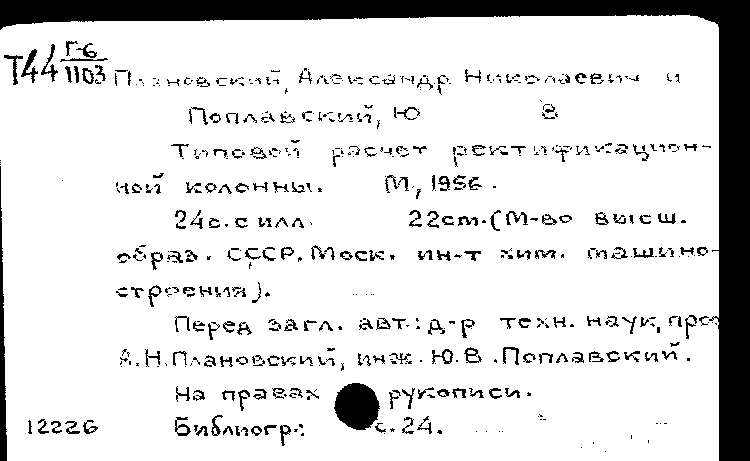 Т44 Г-6
1103
Плановский, Александр Николаевич и
Поплавский, Ю В
Типовой расчет ректификацион-
ной колонны. М., 1956.
24с. с илл. 22см. (М-во высш.
образ. СССР. Моск. ин-т хим. машино-
строения).
Перед загл. авт.: д-р техн. наук, проф
А.Н.Плановский, инж. Ю.В.Поплавский.
На правах рукописи.
12226 Библиогр.: с.24.